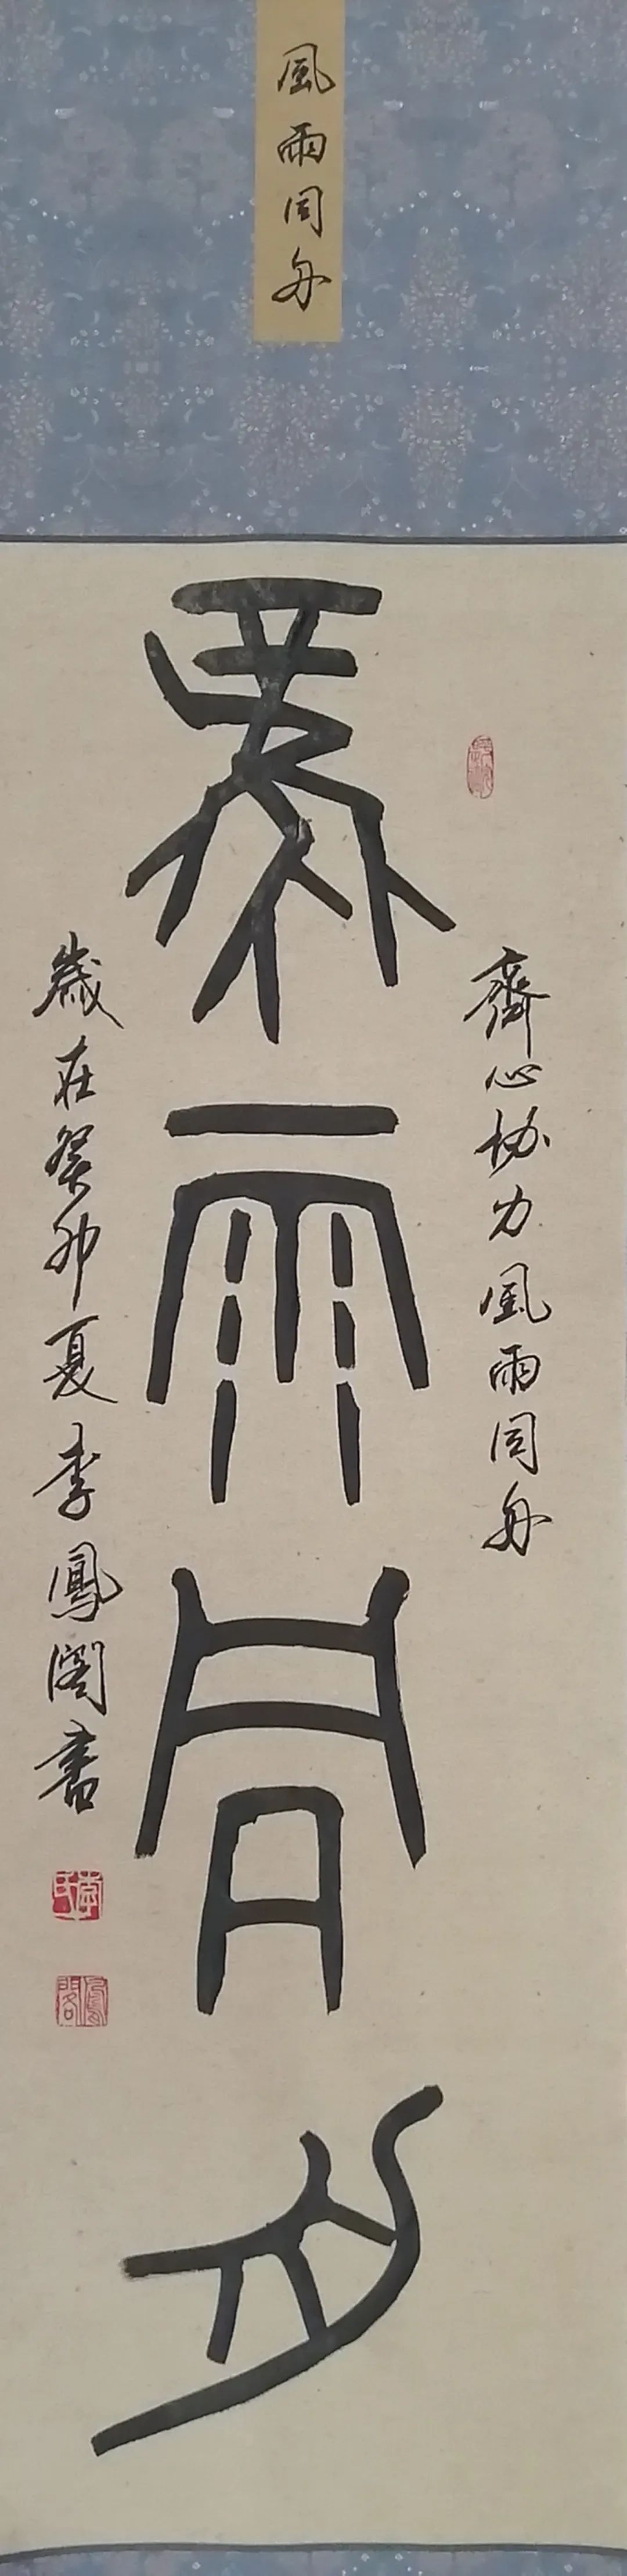 風雨同舟
齊心協力風雨同舟
風雨同舟
歲在癸卯夏李鳳閣書
李氏
鳳閣